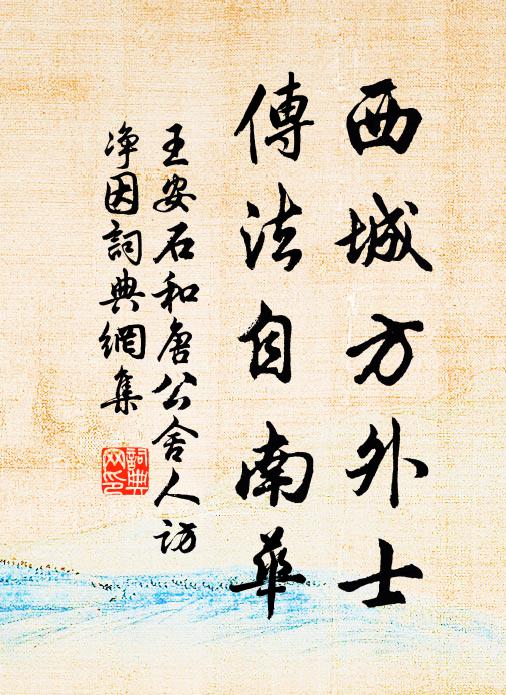 西城方外士
傳法自南華
王安石和唐公舍人訪
净因詞典網集
詞典
网印